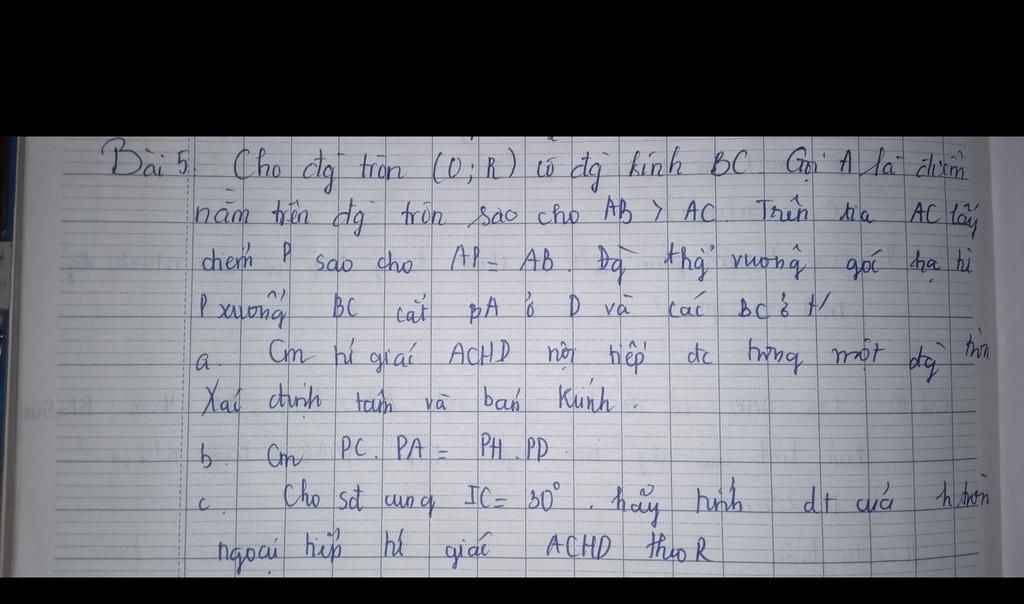 Bài 5 Cho đg tròn (O; R) có đg kính BC Gọi A là điểm
nằm trên đg tròn sao cho AB > AC Trên tia AC lấy
điểm P sao cho AP = AB. Đg thg vuông góc hạ từ
P xuống BC cắt BA ở D và cắc BC ở H
a. Cm tứ giác ACHD nội tiếp đc trong một đg tròn
Xác định tâm và bán kính.
b. Cm PC. PA = PH. PD
c. Cho sđ cung IC = 30° . hãy tính dt của h tròn
ngoại tiếp tứ giác ACHD theo R